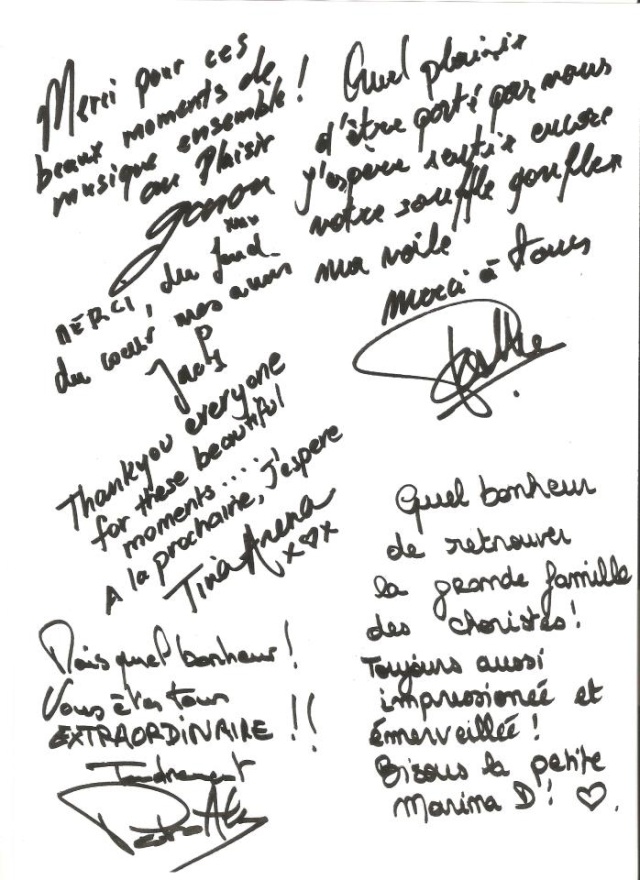 Merci pour ces
beaux moments de
musique ensemble !
au Plaisir
xxx
MERCI, du fond
du coeur mes amis
Thankyou everyone
for these beautiful
moments.....
A la prochaine, J'espere
Tina Arena
x♡x
Mais quel bonheur !
Vous êtes tous
EXTRAORDINAIRE !!
Tendrement
Quel plaisir
d'être porté par vous
j'espère sentir encore
votre souffle gonfler
ma voile
merci à tous
Quel bonheur
de retrouver
la grande famille
des choristes !
Toujours aussi
impressionéé et
émerveillée !
Bisous la petite
Marina D ! ♡.